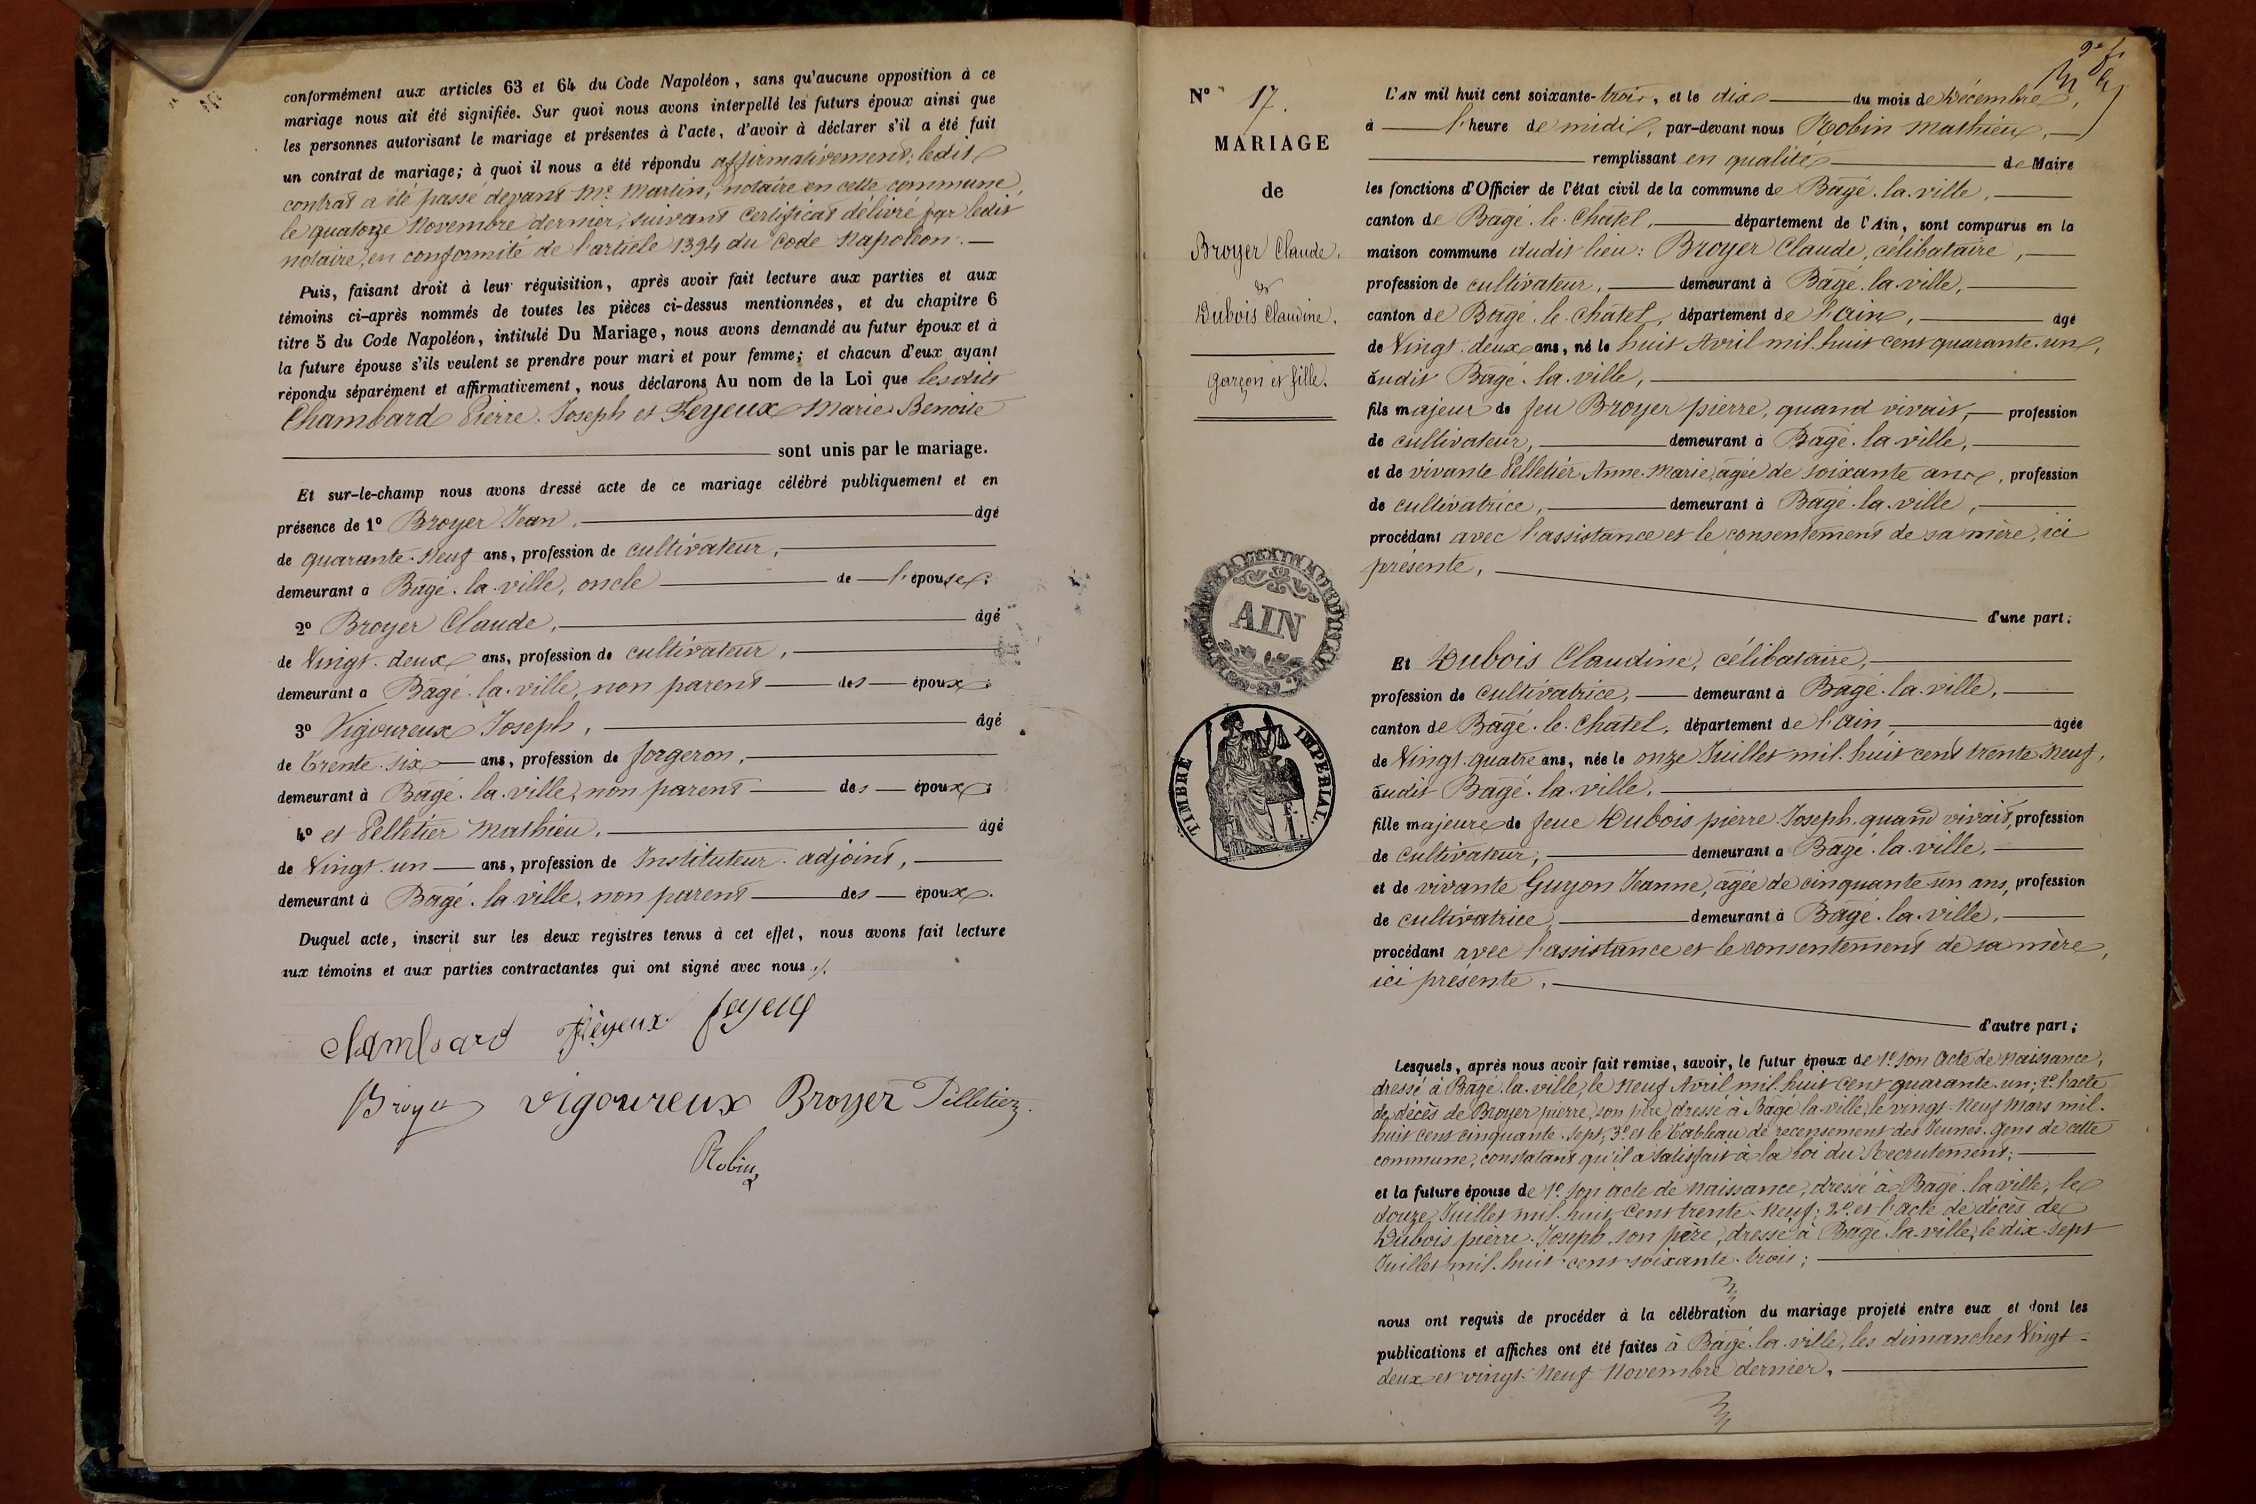 conformément aux articles 63 et 64 du Code Napoléon, sans qu'aucune opposition à ce
mariage nous ait été signifiée. Sur quoi nous avons interpellé les futurs époux ainsi que
les personnes autorisant le mariage et présentes à l'acte, d'avoir à déclarer s'il a été fait
un contrat de mariage; à quoi il nous a été répondu affirmativement; ledit
contrat a été passé devant Me. Martin, notaire en cette commune,
le quatorze Novembre dernier, suivant certificat délivré par ledit
notaire, en conformité de l'article 1394 du Code Napoléon.
Puis, faisant droit à leur réquisition, après avoir fait lecture aux parties et aux
témoins ci-après nommés de toutes les pièces ci-dessus mentionnées, et du chapitre 6
titre 5 du Code Napoléon, intitulé Du Mariage, nous avons demandé au futur époux et à
la future épouse s'ils veulent se prendre pour mari et pour femme; et chacun d'eux ayant
répondu séparément et affirmativement, nous déclarons Au nom de la Loi que lesdits
Chambard Pierre-Joseph et Feyeux Marie-Benoite
sont unis par le mariage.
Et sur-le-champ nous avons dressé acte de ce mariage célébré publiquement et en
présence de 1º Broyer Jean, âgé
de quarante-Neuf ans, profession de cultivateur,
demeurant à Bâgé-la-ville, oncle de l'épouse;
2º Broyer Claude, âgé
de Vingt-deux ans, profession de cultivateur,
demeurant à Bâgé-la-ville, non parent des époux;
3º Vigoureux Joseph, âgé
de Trente-six ans, profession de forgeron,
demeurant à Bâgé-la-ville, non parent des époux;
4º et Pelletier Mathieu, âgé
de Vingt-un ans, profession de Instituteur-adjoint,
demeurant à Bâgé-la-ville, non parent des époux.
Duquel acte, inscrit sur les deux registres tenus à cet effet, nous avons fait lecture
aux témoins et aux parties contractantes qui ont signé avec nous./.
chambard feyeux feyeux
Broyer vigoureux Broyer Pelletier
Robin
Nº 17.
MARIAGE
de
Broyer Claude,
&
Dubois Claudine.
Garçon et fille.
AIN
TIMBRE IMPÉRIAL.
1 F.
L'AN mil huit cent soixante-trois, et le dix du mois de Décembre,
à l'heure de midi, par-devant nous Robin Mathieu,
remplissant en qualité de Maire
les fonctions d'Officier de l'état civil de la commune de Bâgé-la-ville,
canton de Bâgé-le-Châtel, département de l'Ain, sont comparus en la
maison commune dudit lieu: Broyer Claude, célibataire,
profession de cultivateur, demeurant à Bâgé-la-ville,
canton de Bâgé-le-Châtel, département de l'ain, âgé
de Vingt-deux ans, né le huit Avril mil-huit cent quarante-un,
audit Bâgé-la-ville,
fils majeur de feu Broyer pierre, quand vivait, profession
de cultivateur, demeurant à Bâgé-la-ville,
et de vivante Pelletier Anne-Marie, âgée de soixante ans, profession
de cultivatrice, demeurant à Bâgé-la-ville,
procédant avec l'assistance et le consentement de sa mère, ici
présente,
d'une part;
Et Dubois Claudine, célibataire,
profession de cultivatrice, demeurant à Bâgé-la-ville,
canton de Bâgé-le-Châtel, département de l'ain, âgée
de Vingt-quatre ans, née le onze Juillet mil-huit cent trente-Neuf,
audit Bâgé-la-ville,
fille majeure de feue Dubois pierre-Joseph, quand vivait, profession
de cultivateur, demeurant à Bâgé-la-ville,
et de vivante Guyon Jeanne, âgée de cinquante-un ans, profession
de cultivatrice, demeurant à Bâgé-la-ville,
procédant avec l'assistance et le consentement de sa mère,
ici présente,
d'autre part;
Lesquels, après nous avoir fait remise, savoir, le futur époux de 1º. son acte de Naissance,
dressé à Bâgé-la-ville, le Neuf Avril mil-huit cent quarante-un; 2º. l'acte
de décès de Broyer pierre, son père, dressé à Bâgé-la-ville, le vingt-Neuf Mars mil-
huit cent cinquante-sept; 3º. et le Tableau de recensement des Jeunes-Gens de cette
commune, constatant qu'il a satisfait à la loi du Recrutement;
et la future épouse de 1º. son acte de naissance, dressé à Bâgé-la-ville, le
douze Juillet mil-huit cent trente-Neuf; 2º. et l'acte de décès de
Dubois pierre-Joseph son père, dressé à Bâgé-la-ville, le dix-sept
Juillet mil-huit cent soixante-trois;
nous ont requis de procéder à la célébration du mariage projeté entre eux et dont les
publications et affiches ont été faites à Bâgé-la-ville, les dimanches Vingt-
deux et vingt-Neuf Novembre dernier,